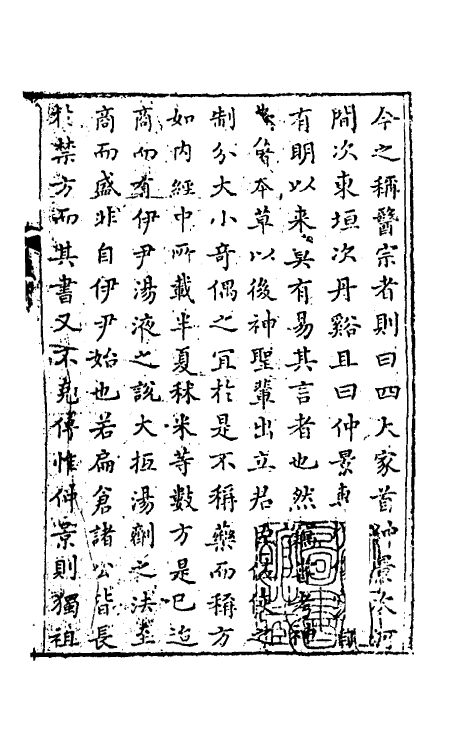 今之稱醫宗者則曰四大家首仲景次河
間次東垣次丹谿且曰仲景專
有明以来莫有易其言者也然
本草以後神聖輩出立君臣佐使之
制分大小奇偶之宜於是不稱藥而稱方
如内經中所載半夏秫米等數方是已迨
商而有伊尹湯液之說大抵湯劑之法至
商而盛非自伊尹始也若扁倉諸公皆長
於禁方而其書又不克傳惟仲景則獨祖